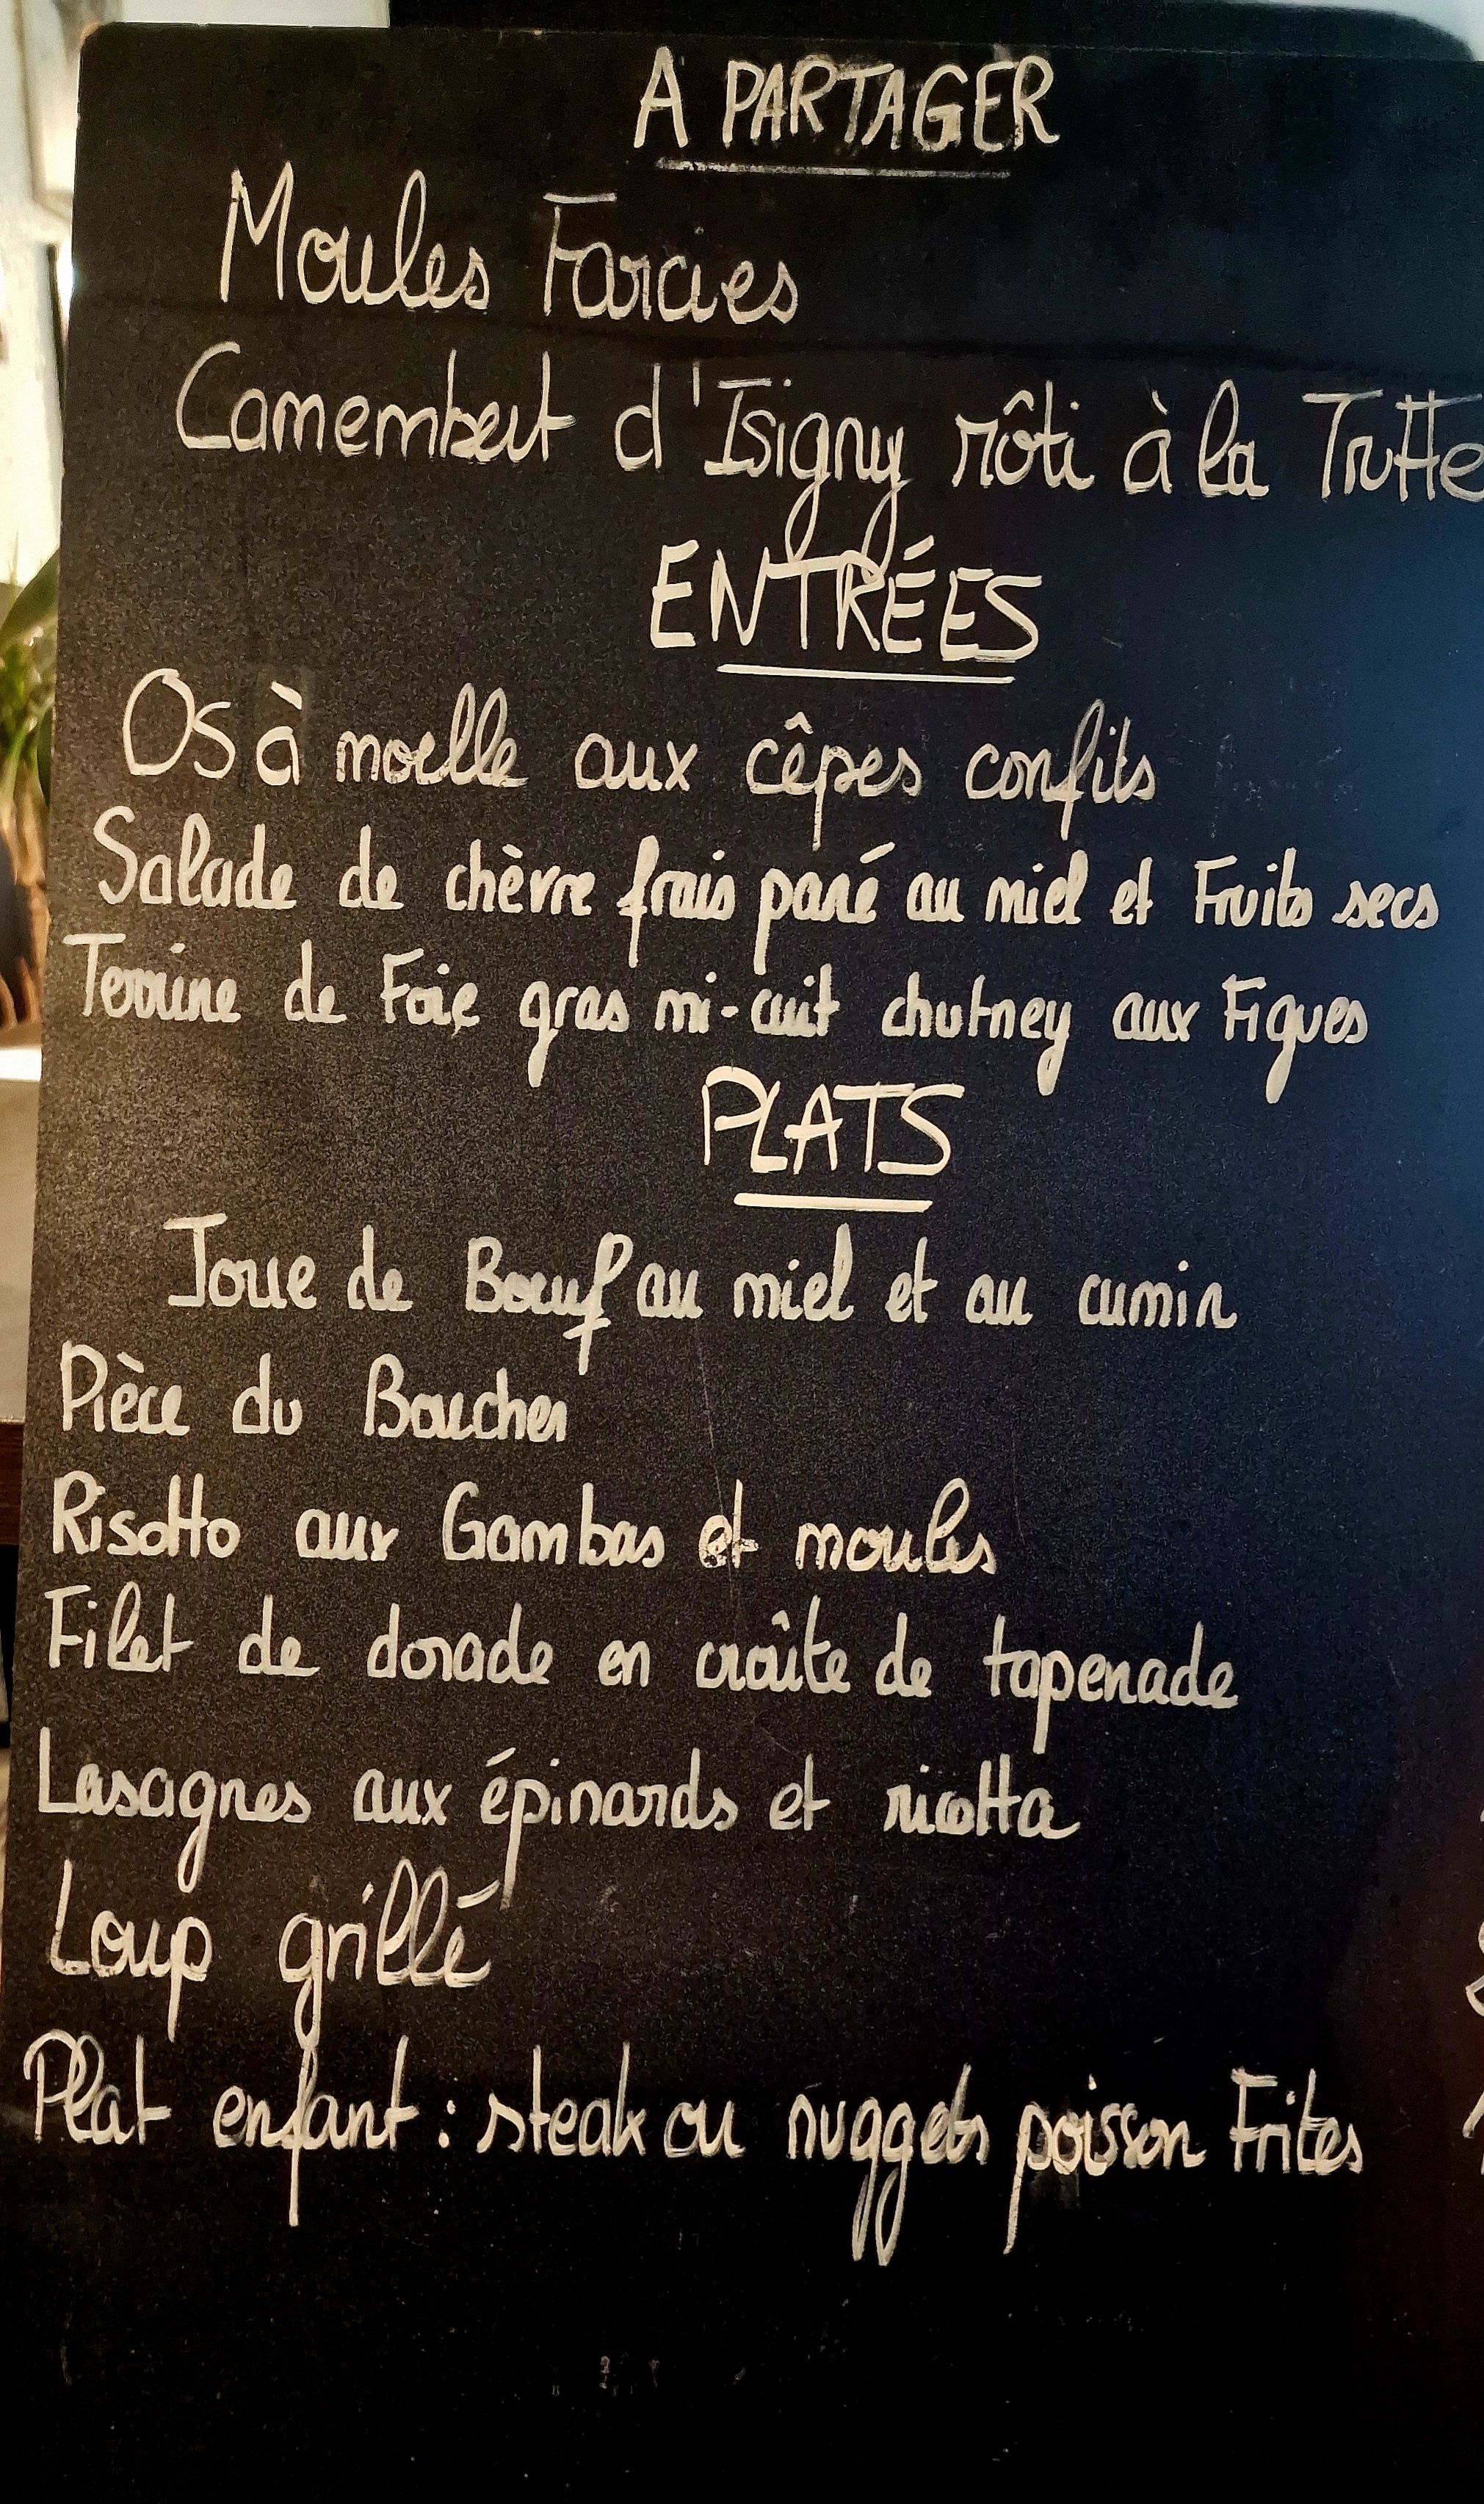 A PARTAGER
Moules Farcies
Camembert d'Isigny rôti à la Truffe
ENTRÉES
Os à moelle aux cêpes confits
Salade de chèvre frais pané au miel et Fruits secs
Terrine de Foie gras mi-cuit chutney aux Figues
PLATS
Joue de Boeuf au miel et au cumin
Pièce du Boucher
Risotto aux Gambas et moules
Filet de dorade en croûte de tapenade
Lasagnes aux épinards et ricotta
Loup grillé
Plat enfant : steak ou nuggets poisson Frites